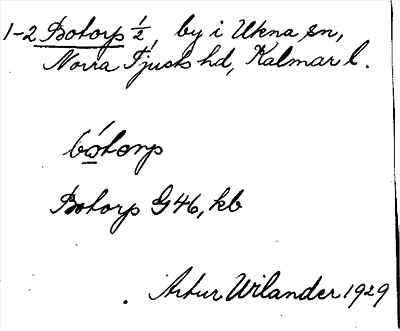 1-2 Botorp 1/2, by i Ukna sn,
Norra Tjusts hd, Kalmar l.
bótorp
Botorp G46, kb
Artur Wilander 1929